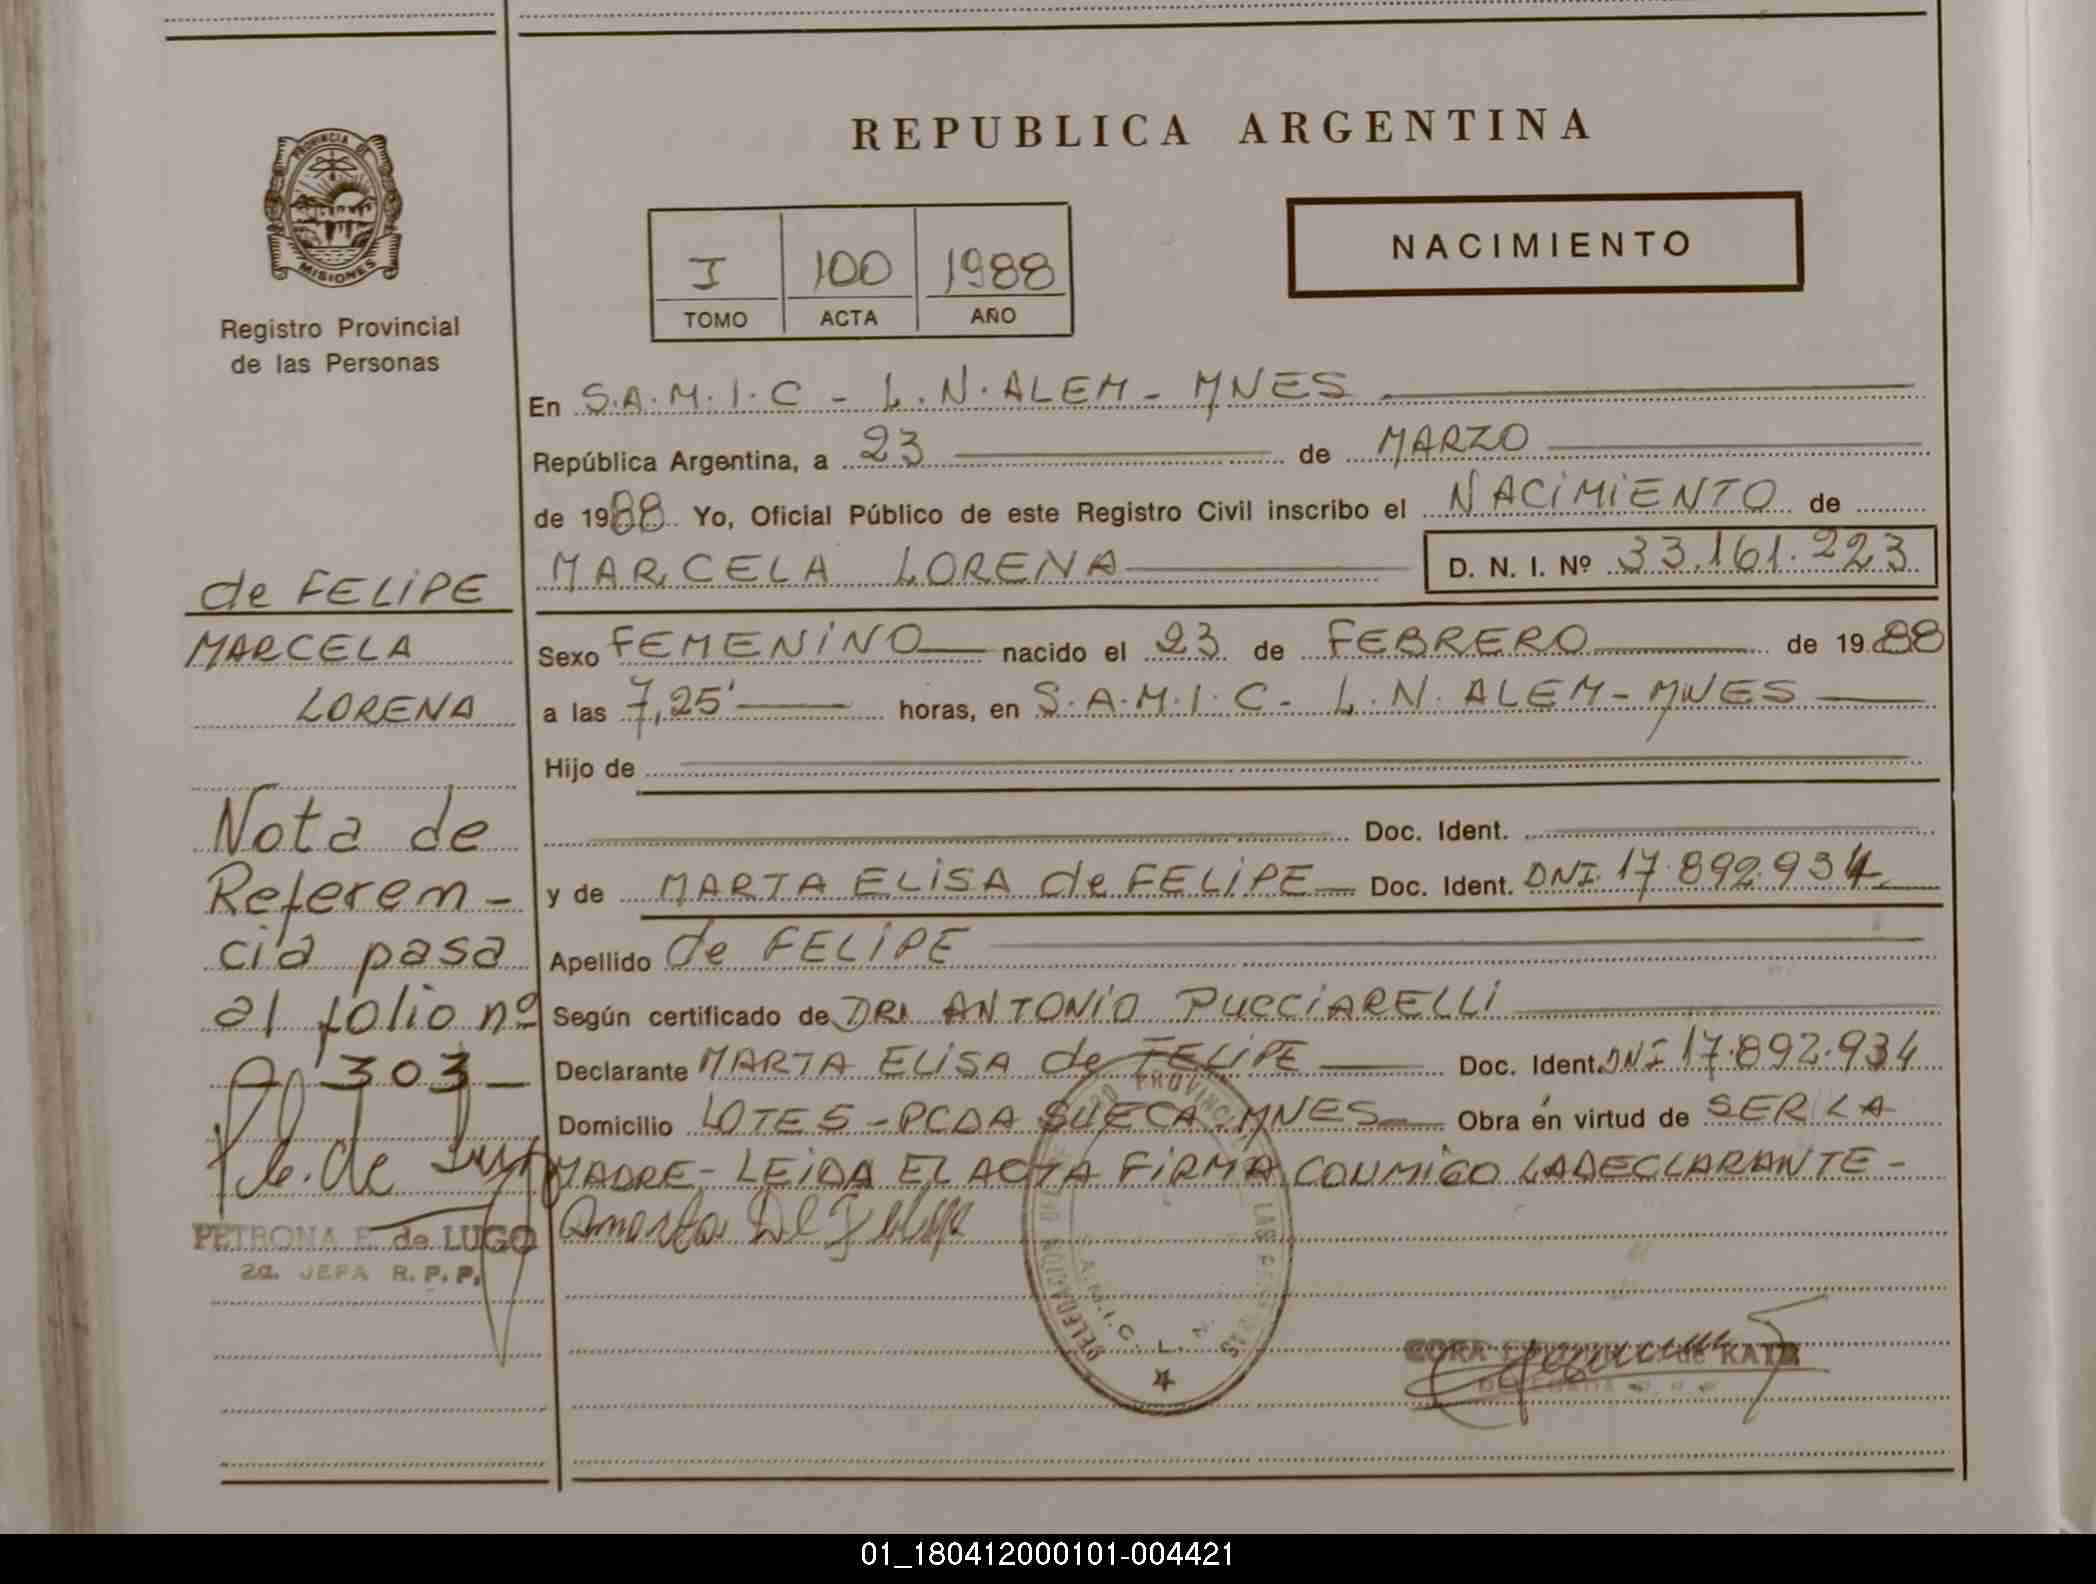 REPUBLICA ARGENTINA
PROVINCIA DE
MISIONES
Registro Provincial
de las Personas
NACIMIENTO
I 100 1988
TOMO ACTA AÑO
En S.A.M.I.C - L.N.ALEM - MNES
República Argentina, a 23 de MARZO
de 1988 Yo, Oficial Público de este Registro Civil inscribo el NACIMIENTO de
MARCELA LORENA D. N. I. Nº 33.161.223
Sexo FEMENINO nacido el 23 de FEBRERO de 1988
a las 7,25' horas, en S.A.M.I.C - L.N. ALEM - MNES
Hijo de
Doc. Ident.
y de MARTA ELISA de FELIPE Doc. Ident. DNI. 17.892.934
Apellido de FELIPE
Según certificado de DR. ANTONIO PUCCIARELLI
Declarante MARTA ELISA de FELIPE Doc. Ident. DNI 17.892.934
Domicilio LOTE 5 - PCDA SUECA MNES Obra en virtud de SER LA
MADRE - LEIDA EL ACTA FIRMA CONMIGO LA DECLARANTE -
de FELIPE
MARCELA
LORENA
Nota de
Referen-
cia pasa
al folio nº
303
PETRONA P. de LUGO
2a. JEFA R.P.P.
DELEGACION
PROVINC
LAS
A.M.I.C. L. N.
CORA de KATZ
DELEGADA
01_180412000101-004421